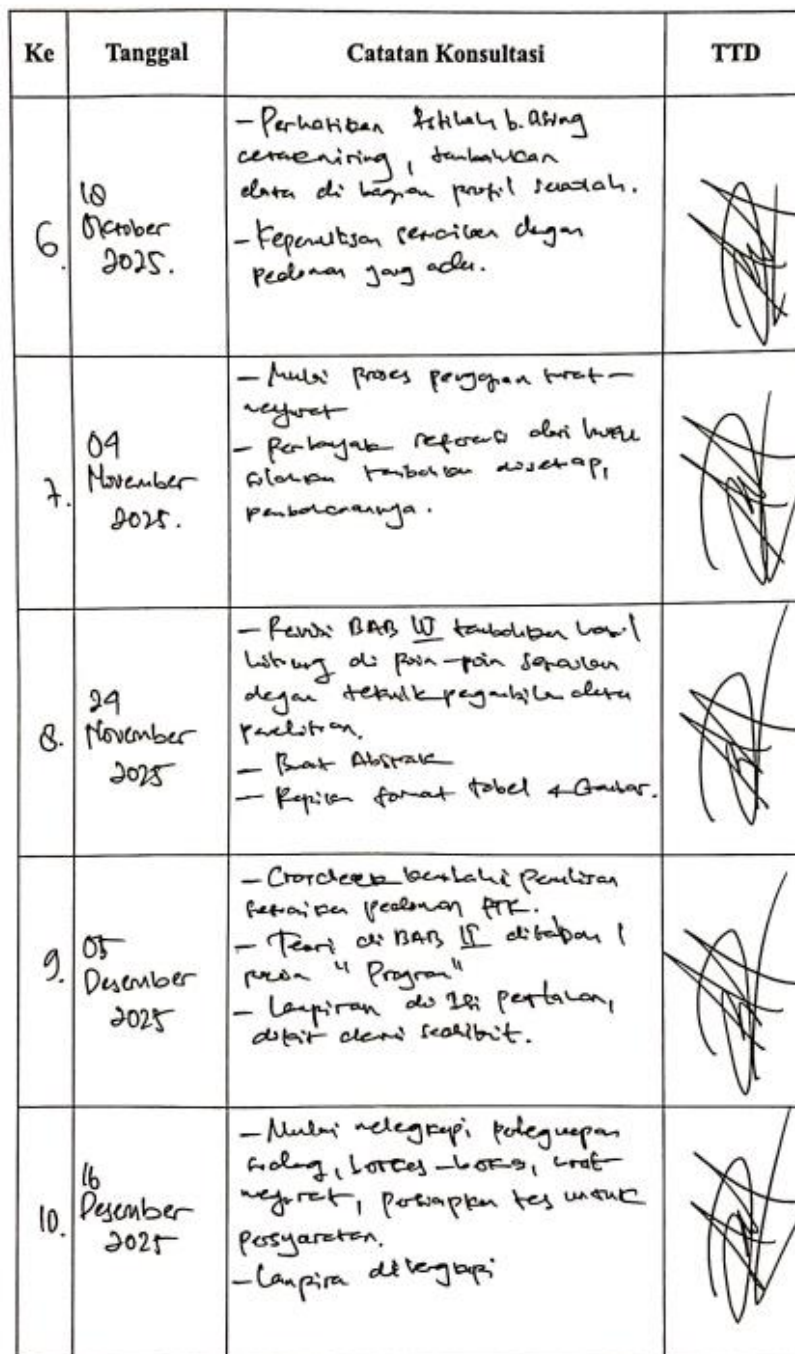 Ke Tanggal Catatan Konsultasi TTD
6. 18 Oktober 2025.
- Perhatikan Istilah b. Asing
cetak miring, tambahkan
data di bagian profil sekolah.
- Kepenulisan sesuaikan dengan
pedoman yang ada.
7. 04 November 2025.
- Mulai proses pengajuan surat-
menyurat
- Perbanyak referensi dari buku
silahkan tambahkan disetiap,
pembahasannya.
8. 24 November 2025
- Revisi BAB IV tambahkan hasil
hitung di poin-poin sesuaikan
dengan teknik pengambilan data
penelitian.
- Buat Abstrak
- Rapikan format tabel & Gambar.
9. 05 Desember 2025
- Crosscheck kembali Penulisan
sesuaikan pedoman
- Teori di BAB II ditambah 1
poin "Program"
- Lampiran di isi perlahan,
demi sedikit.
10. 16 Desember 2025
- Mulai melengkapi
sidang, berkas-berkas, surat
menyurat, persiapkan tes untuk
persyaratan.
- Lampiran dilengkapi